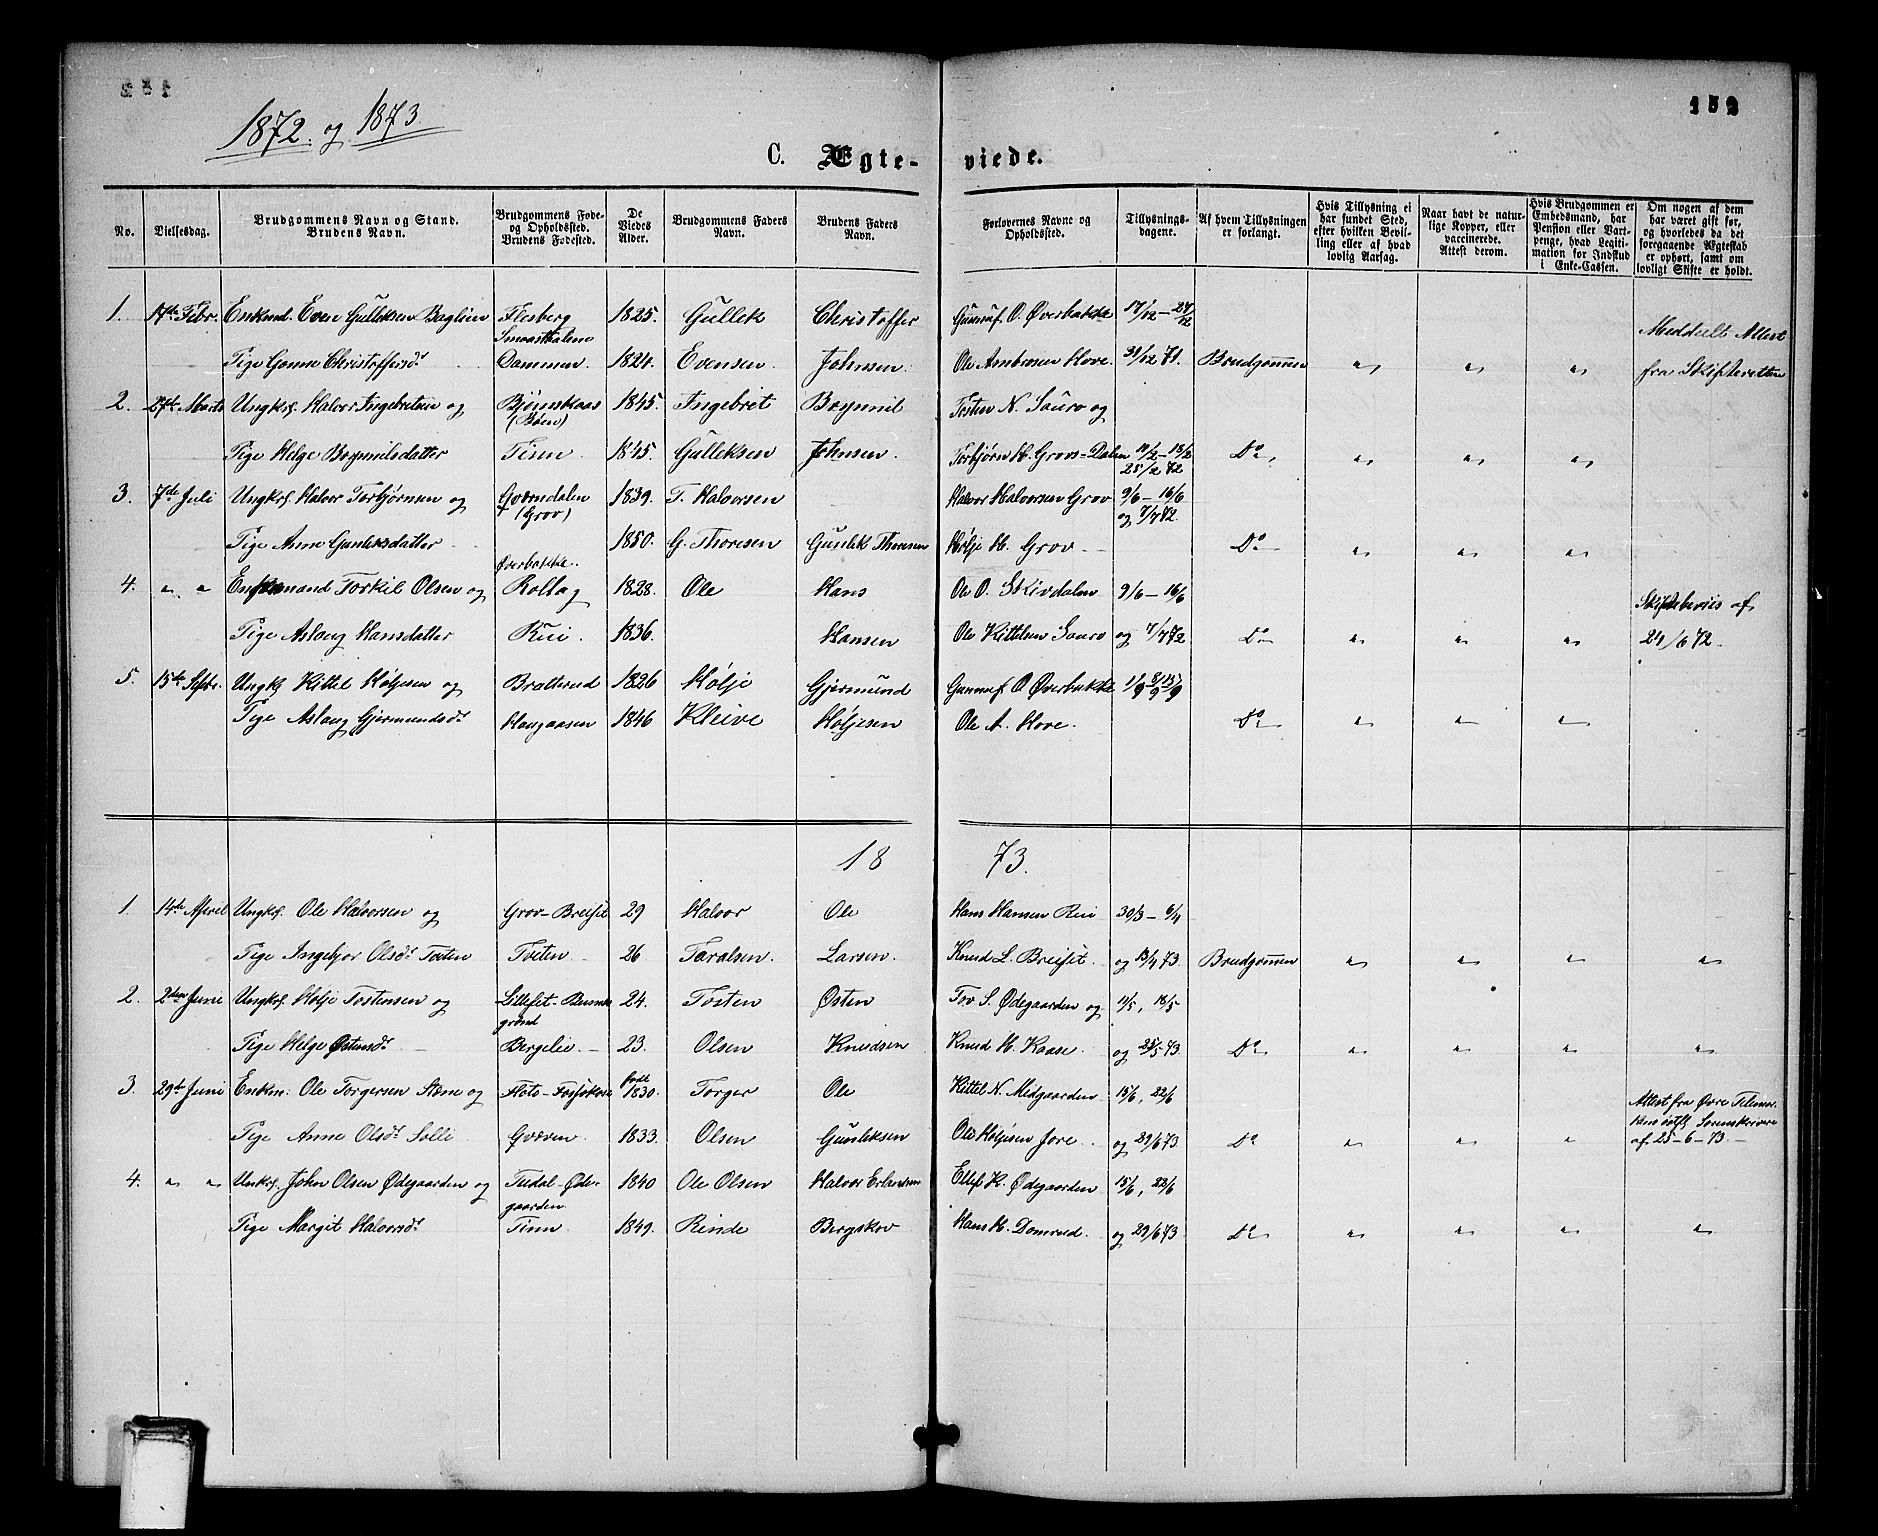 152
1872 og 1873.
C. Ægte-viede.
No. | Vielsesdag. | Brudgommens Navn og Stand. Brudens Navn. | Brudgommens Føde- og Opholdssted. Brudens Fødested. | De Viedes Alder. | Brudgommens Faders Navn. | Brudens Faders Navn. | Forlovernes Navne og Opholdssted. | Tillysnings-dagene. | Af hvem Tillysningen er forlangt. | Hvis Tillysning ei har fundet Sted, efter hvilken Bevilling eller af hvad lovlig Aarsag. | Naar havt de naturlige Kopper, eller vaccinerede. Attest derom. | Hvis Brudgommen er Embedsmand, har Pension eller Vartpenge, hvad Legitimation for Indskud i Enke-Cassen. | Om nogen af dem har været gift før, og hvorledes da det foregaaende Ægteskab er ophørt, samt om lovligt Skifte er holdt.
1. 17de Febr. Enkmd. Even Gulleksen Baglien Flesberg 1825. Gullek Christoffer Gunnuf O. Øverbakke 17/12 – 24/12 Meddeelt Attest
Pige Gonne Christoffersdr. Dammen 1824. Evensen Johnsen. Ole Ambrosen Hove. 31/12 71. Brudgommen " " " fra Skifteretten
2. 27de Marts Ungkf. Halvor Ingebretsen og Bjørnskaas (Bøen) 1845. Ingebret Boymil Tosten N. Sauro og
Pige Helge Boymilsdatter Tinn 1845. Gulleksen Johnsen. Torbjørn H. Grovs-Dalen 11/2 – 18/2 25/2 72 Do " " "
3. 7de Juli Ungkf. Halvor Torbjørnsen og Gværndalen (Grov) 1839. T. Halvorsen Halvor Halvorsen Grov 9/6 – 16/6 og 7/7 72.
Pige Anne Gunleksdatter 1850. G. Thoresen Gunlek Thoresen Hølje H. Grov Do " " "
Øverbakke
4. " " Enkemand Torkil Olsen og Rollag 1828. Ole Hans Ole O. Skivdalen 9/6 – 16/6 Skiftebeviis af
Pige Aslaug Hansdatter Rui 1836. Hansen Ole Kittelsen Sauro og 7/7 72 Do " " " 24/6 72
5. 15de Septbr. Ungkf Kittel Høljesen og Bratterud 1826 Hølje Gjermund Gunnuf O Øverbakke 1/9 8/9 15/9
Pige Aslaug Gjermundsdr. Haugaasen 1846 Kleive Høljesen Ole A. Hove. Do " " "
18 73.
1. 14de April Ungkf. Ole Halvorsen og Grov-Breiset 29 Halvor Ole Hans Hansen Rui 30/3 – 6/4
Pige Ingebjor Olsdr. Tveten Tveten 26 Taralsen. Larsen. Knud L. Breiset. og 13/4 73 Brudgommen " " " "
2. 2den Juni Ungkf. Hølje Tostensen og Lilleset- 24. Tosten Østen Tov S. Ødegaarden og 11/5, 18/5
Pige Helge Østensdr. Bergelie 23. Olsen Knudsen Knud H. Kaase. og 25/5 73. Do " " " "
3. 29de Juni Enkm. Ole Torgersen Stene og født 1830. Torger Ole Kittel N. Midgaarden 15/6, 22/6 Attest fra Øvre Telemar-
Pige Anne Olsdr. Solli Gvæven 1833. Olsen Gunleksen Ole Høljesen Jore og 29/6 73 Do " " " Sorenskrivere af 25-6-73.
4. " " Unkf. John Olsen Ødegaarden og Tudal-Ødegaarden 1840 Ole Olsen Halvor Erlandsen Ellef K. Ødegaarden 15/6, 22/6
Pige Margit Halvorsdr. Tinn 1849. Rinde Bergskov Hans H. Domrud. og 29/6 73 Do " " " "